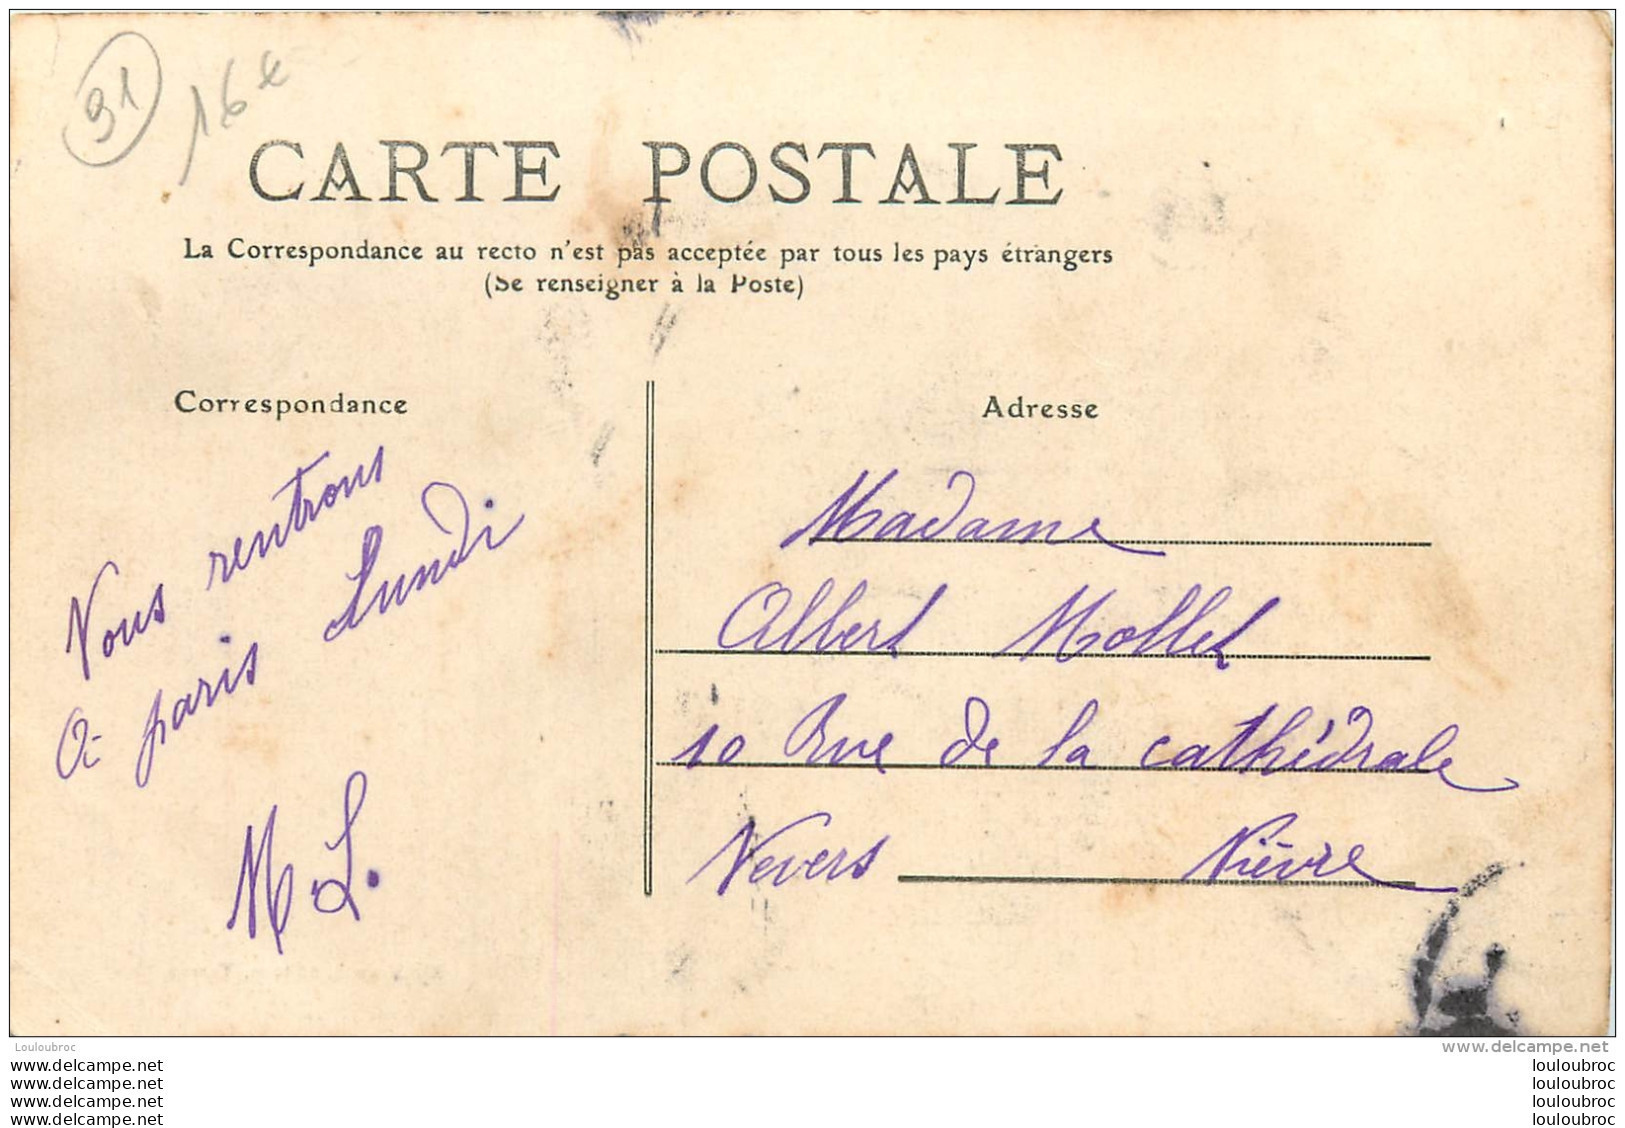 91
16€
CARTE POSTALE
La Correspondance au recto n'est pas acceptée par tous les pays étrangers
(Se renseigner à la Poste)
Correspondance
Adresse
Nous rentrons
a paris Lundi
M L.
Madame
Albert Mollet
10 Rue de la cathédrale
Nevers Nièvre
Louloubroc
www.delcampe.net
www.delcampe.net
www.delcampe.net
www.delcampe.net
www.delcampe.net
louloubroc
louloubroc
louloubroc
louloubroc